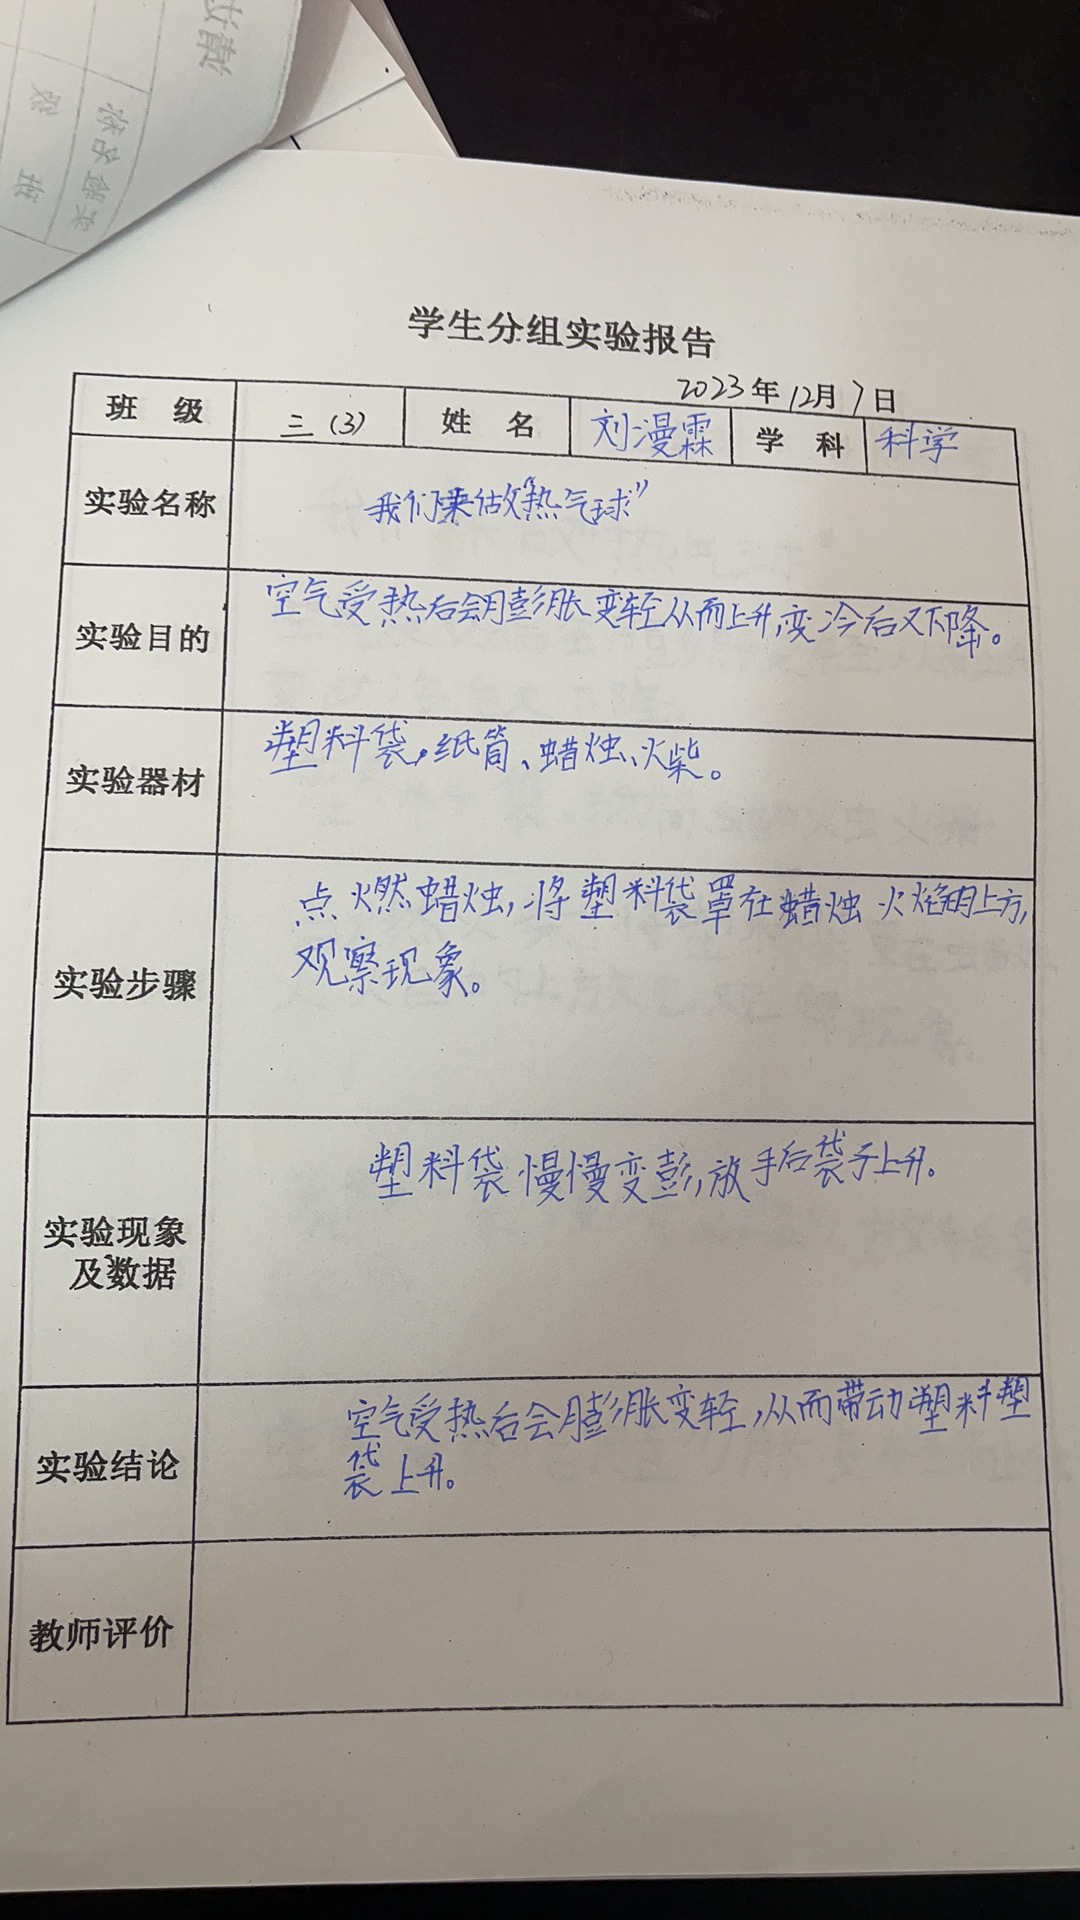 学生分组实验报告
2023年12月7日
班 级 三(3) 姓 名 刘漫霖 学 科 科学
实验名称 我们来做“热气球”
实验目的 空气受热后会膨胀变轻从而上升,变冷后又下降。
实验器材 塑料袋,纸筒、蜡烛、火柴。
实验步骤 点燃蜡烛,将塑料袋罩在蜡烛火焰上方,
观察现象。
实验现象 塑料袋慢慢变彭,放手后袋子上升。
及数据
实验结论 空气受热后会膨胀变轻,从而带动塑料塑
袋上升。
教师评价